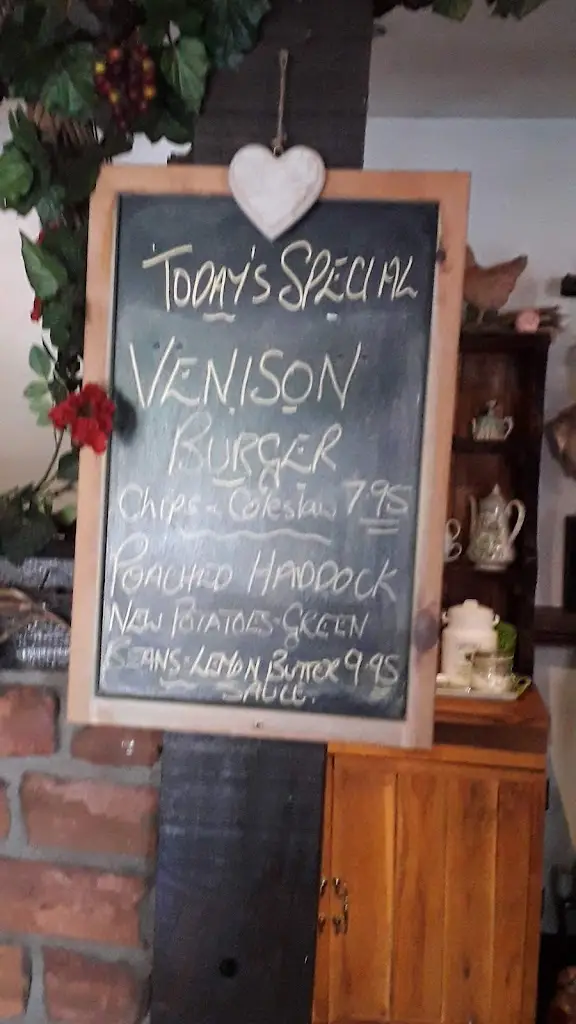 TODAY'S SPECIAL
VENISON
BURGER
CHIPS - Coleslaw 7.95
POACHED HADDOCK
NEW POTATOES - GREEN
BEANS - LEMON BUTTER 9.95
SAUCE.